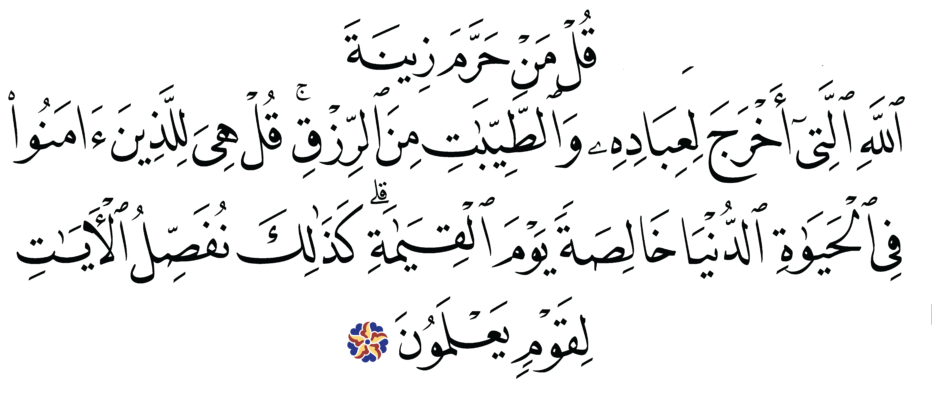 قُلْ مَنْ حَرَّمَ زِينَةَ
ٱللَّهِ ٱلَّتِىٓ أَخْرَجَ لِعِبَادِهِۦ وَٱلطَّيِّبَٰتِ مِنَ ٱلرِّزْقِ ۚ قُلْ هِىَ لِلَّذِينَ ءَامَنُوا۟
فِى ٱلْحَيَوٰةِ ٱلدُّنْيَا خَالِصَةً يَوْمَ ٱلْقِيَٰمَةِ ۗ كَذَٰلِكَ نُفَصِّلُ ٱلْءَايَٰتِ
لِقَوْمٍ يَعْلَمُونَ